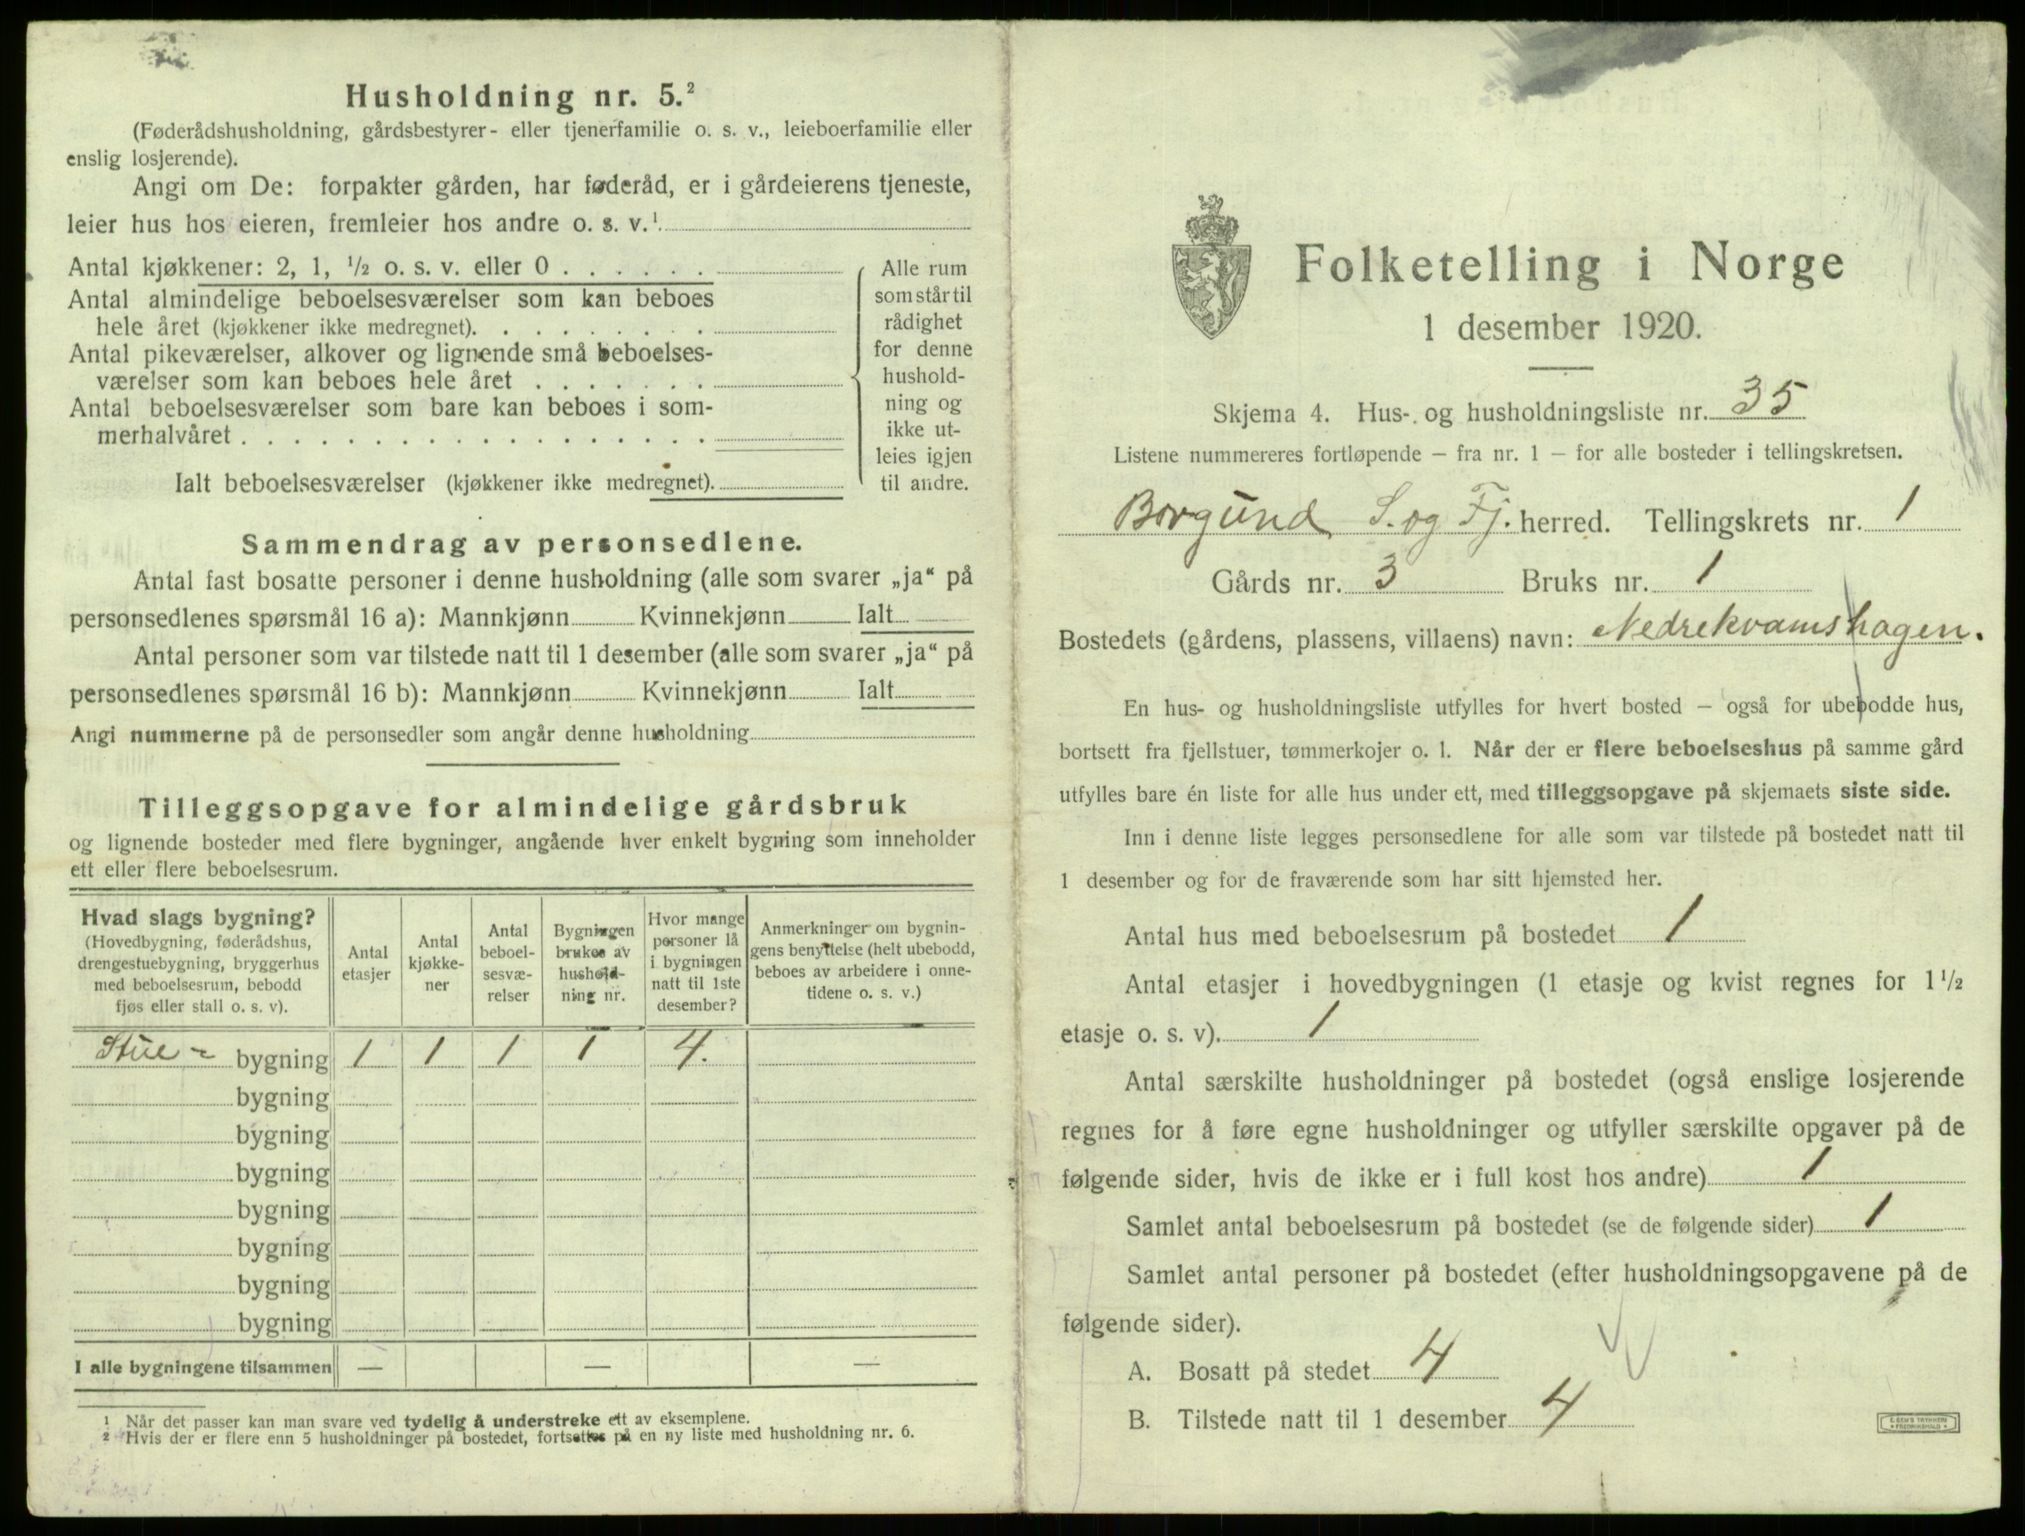 Husholdning nr. 5.²
(Føderådshusholdning, gårdsbestyrer- eller tjenerfamilie o. s. v., leieboerfamilie eller
enslig losjerende).
Angi om De: forpakter gården, har føderåd, er i gårdeierens tjeneste,
leier hus hos eieren, fremleier hos andre o. s. v.¹
Antal kjøkkener: 2, 1, ½ o. s. v. eller 0 . . . . . .
Antal almindelige beboelsesværelser som kan beboes
hele året (kjøkkener ikke medregnet). . . . . . . . .
Antal pikeværelser, alkover og lignende små beboelses-
værelser som kan beboes hele året . . . . . . .
Antal beboelsesværelser som bare kan beboes i som-
merhalvåret . . . . . . . . . . . . . . . . . .
Ialt beboelsesværelser (kjøkkener ikke medregnet).
Alle rum
som står til
rådighet
for denne
hushold-
ning og
ikke ut-
leies igjen
til andre.
Sammendrag av personsedlene.
Antal fast bosatte personer i denne husholdning (alle som svarer „ja“ på
personsedlenes spørsmål 16 a): Mannkjønn Kvinnekjønn Ialt
Antal personer som var tilstede natt til 1 desember (alle som svarer „ja“ på
personsedlenes spørsmål 16 b): Mannkjønn Kvinnekjønn Ialt
Angi nummerne på de personsedler som angår denne husholdning
Tilleggsopgave for almindelige gårdsbruk
og lignende bosteder med flere bygninger, angående hver enkelt bygning som inneholder
ett eller flere beboelsesrum.
Hvad slags bygning?
(Hovedbygning, føderådshus,
drengestuebygning, bryggerhus
med beboelsesrum, bebodd
fjøs eller stall o. s. v).
Antal
etasjer
Antal
kjøkke-
ner
Antal
beboel-
sesvæ-
relser
Bygningen
brukes av
hushold-
ning nr.
Hvor mange
personer lå
i bygningen
natt til 1ste
desember?
Anmerkninger om bygnin-
gens benyttelse (helt ubebodd,
beboes av arbeidere i onne-
tidene o. s. v.)
Stue- bygning 1 1 1 1 4.
bygning
bygning
bygning
bygning
bygning
bygning
bygning
I alle bygningene tilsammen — — —
¹ Når det passer kan man svare ved tydelig å understreke ett av eksemplene.
² Hvis der er flere enn 5 husholdninger på bostedet, fortsettes på en ny liste med husholdning nr. 6.
Folketelling i Norge
1 desember 1920.
Skjema 4. Hus- og husholdningsliste nr. 35
Listene nummereres fortløpende – fra nr. 1 – for alle bosteder i tellingskretsen.
Borgund S. og Fj. herred. Tellingskrets nr. 1
Gårds nr. 3 Bruks nr. 1
Bostedets (gårdens, plassens, villaens) navn: Nedrekvamshagen.
En hus- og husholdningsliste utfylles for hvert bosted – også for ubebodde hus,
bortsett fra fjellstuer, tømmerkojer o. l. Når der er flere beboelseshus på samme gård
utfylles bare én liste for alle hus under ett, med tilleggsopgave på skjemaets siste side.
Inn i denne liste legges personsedlene for alle som var tilstede på bostedet natt til
1 desember og for de fraværende som har sitt hjemsted her.
Antal hus med beboelsesrum på bostedet 1
Antal etasjer i hovedbygningen (1 etasje og kvist regnes for 1½
etasje o. s. v). 1
Antal særskilte husholdninger på bostedet (også enslige losjerende
regnes for å føre egne husholdninger og utfyller særskilte opgaver på de
følgende sider, hvis de ikke er i full kost hos andre) 1
Samlet antal beboelsesrum på bostedet (se de følgende sider) 1
Samlet antal personer på bostedet (efter husholdningsopgavene på de
følgende sider).
A. Bosatt på stedet 4
B. Tilstede natt til 1 desember 4